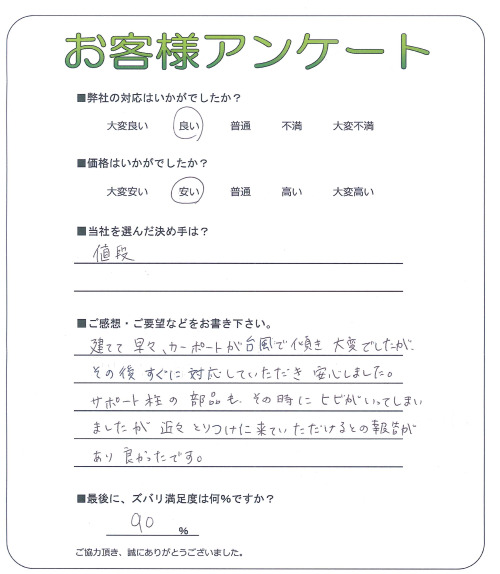 お客様アンケート
■弊社の対応はいかがでしたか？
大変良い 良い 普通 不満 大変不満
■価格はいかがでしたか？
大変安い 安い 普通 高い 大変高い
■当社を選んだ決め手は？
値段
■ご感想・ご要望などをお書き下さい。
建てて 早々、カーポートが台風で傾き 大変でしたが、
その後 すぐに 対応していただき 安心しました。
サポート柱の 部品も、その時に ヒビがいってしまい
ましたが 近々 とりつけに来ていただけるとの報告が
あり 良かったです。
■最後に、ズバリ満足度は何％ですか？
90 ％
ご協力頂き、誠にありがとうございました。